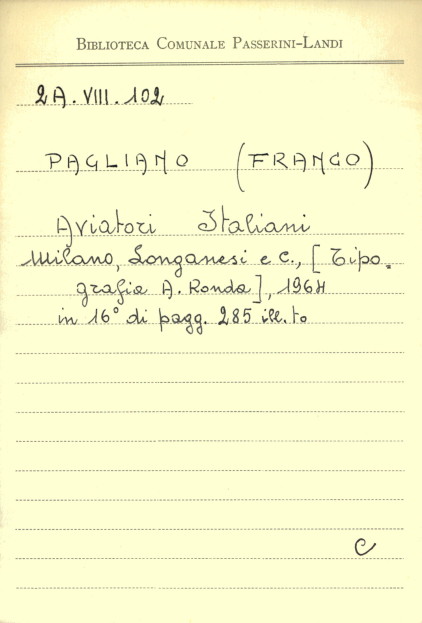 BIBLIOTECA COMUNALE PASSERINI-LANDI
2A.VIII.102
PAGLIANO (FRANCO)
Aviatori Italiani
Milano, Longanesi e C., [Tipo-
grafia A. Ronda], 1964
in 16° di pagg. 285 ill.to
C